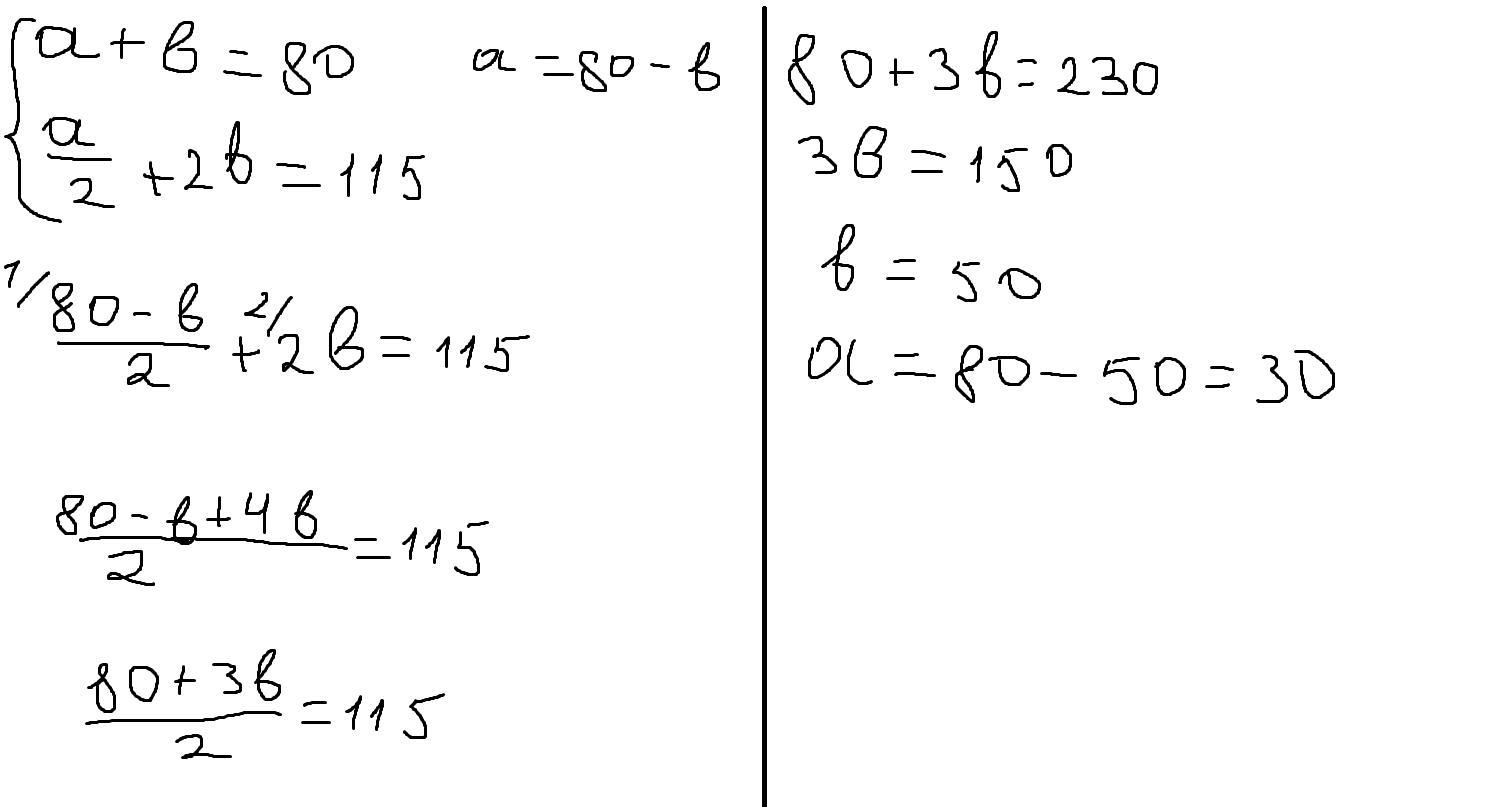 a + b = 80    a = 80 - b
a/2 + 2b = 115
1/ (80 - b)/2 + 2/ 2b = 115
(80 - b + 4b)/2 = 115
(80 + 3b)/2 = 115
80 + 3b = 230
3b = 150
b = 50
a = 80 - 50 = 30